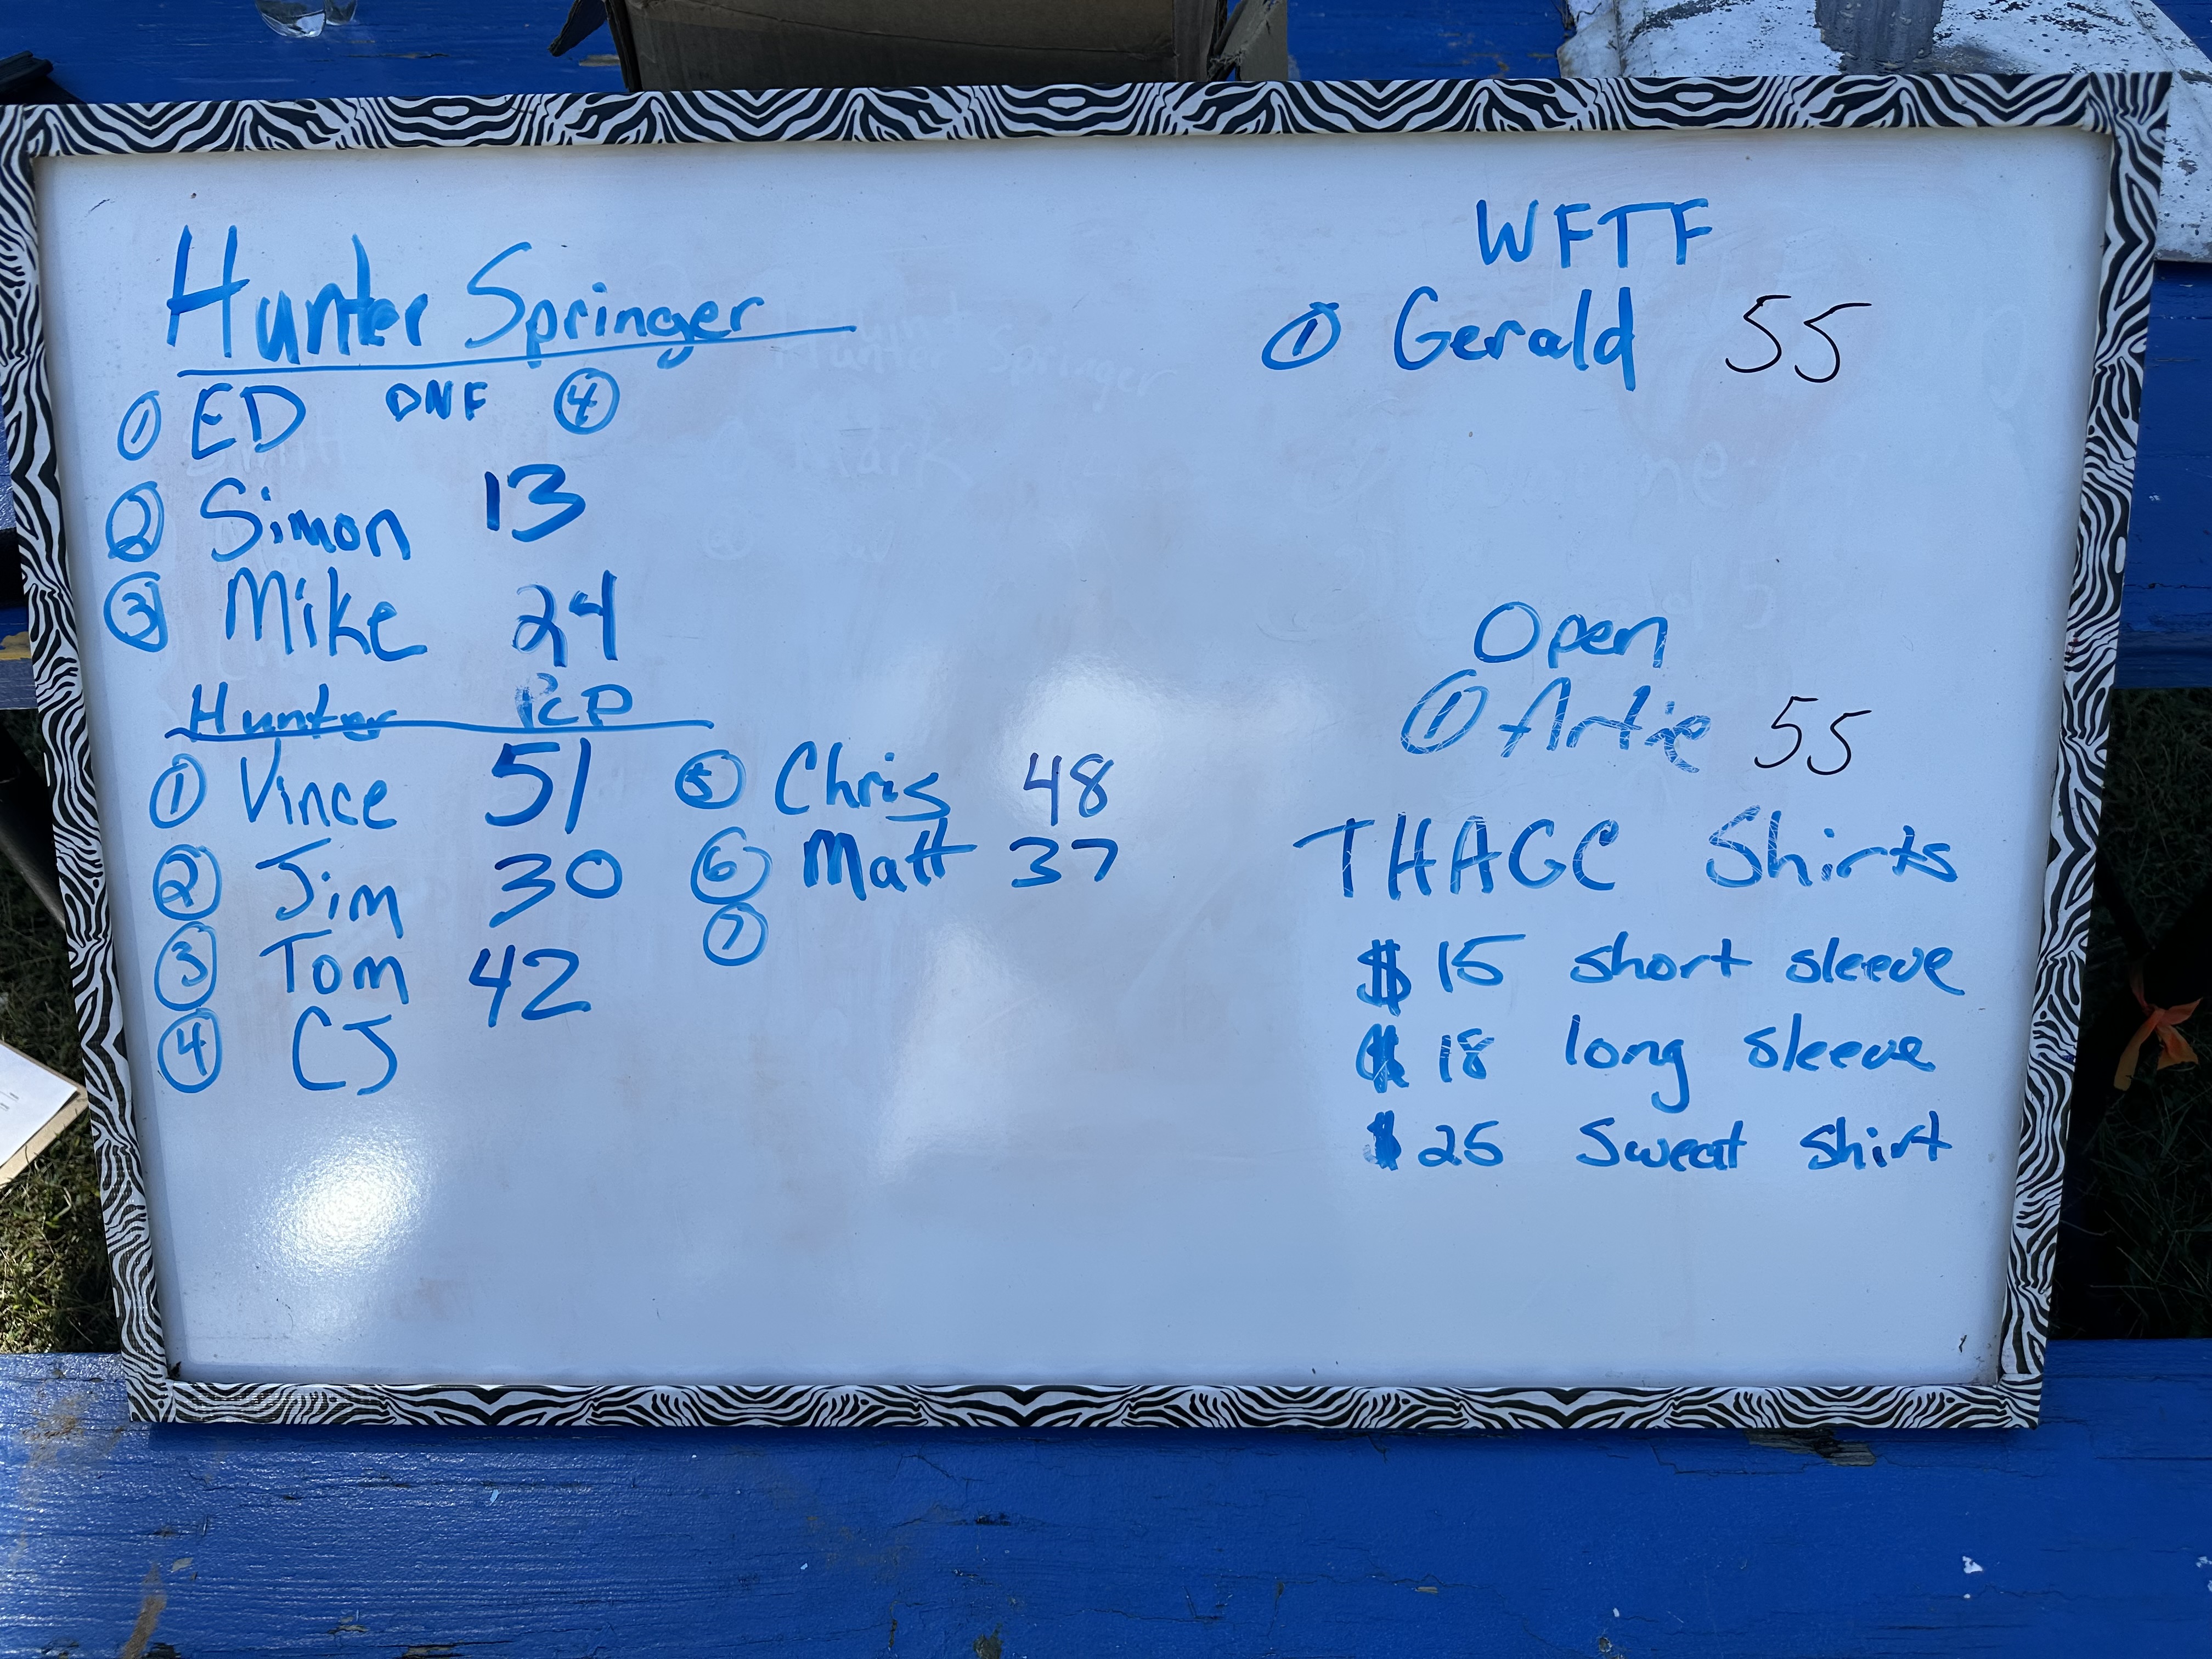 Hunter Springer
① ED DNF ④
② Simon 13
③ Mike 24
Hunter PCP
① Vince 51
② Jim 30
③ Tom 42
④ CJ
⑤ Chris 48
⑥ Matt 37
⑦
WFTF
① Gerald 55
Open
① Artie 55
THAGC Shirts
$15 short sleeve
$18 long sleeve
$25 Sweat shirt